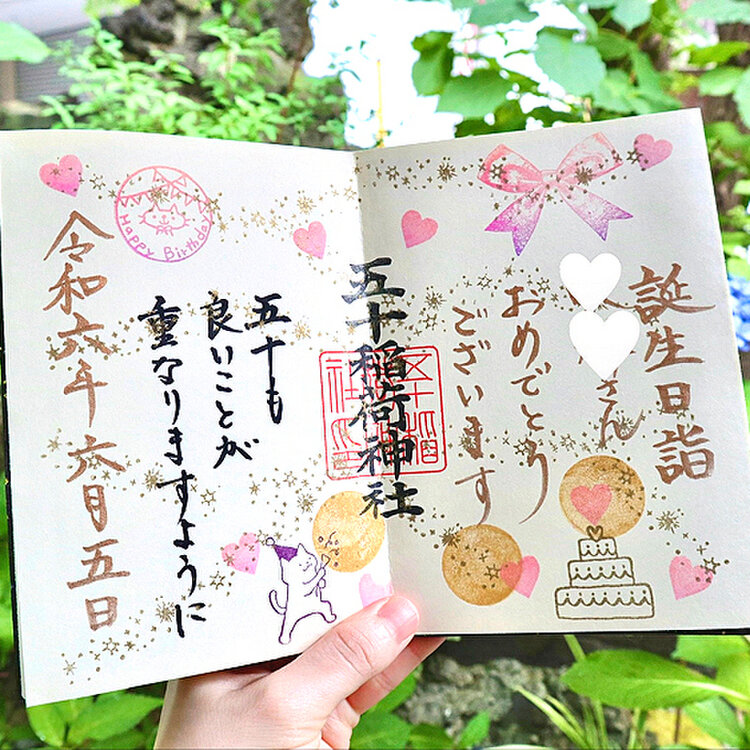 誕生日詣
さん
おめでとう
ございます
五十稲荷神社
五十稲荷
社
五十も
良いことが
重なりますように
Happy Birthday
令和六年六月五日